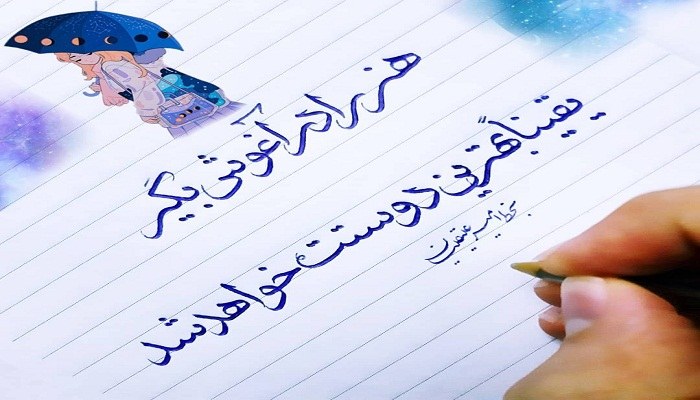 هنر را در آغوش بگیر
یقیناً بهترین دوستت خواهد شد
بخط امیر